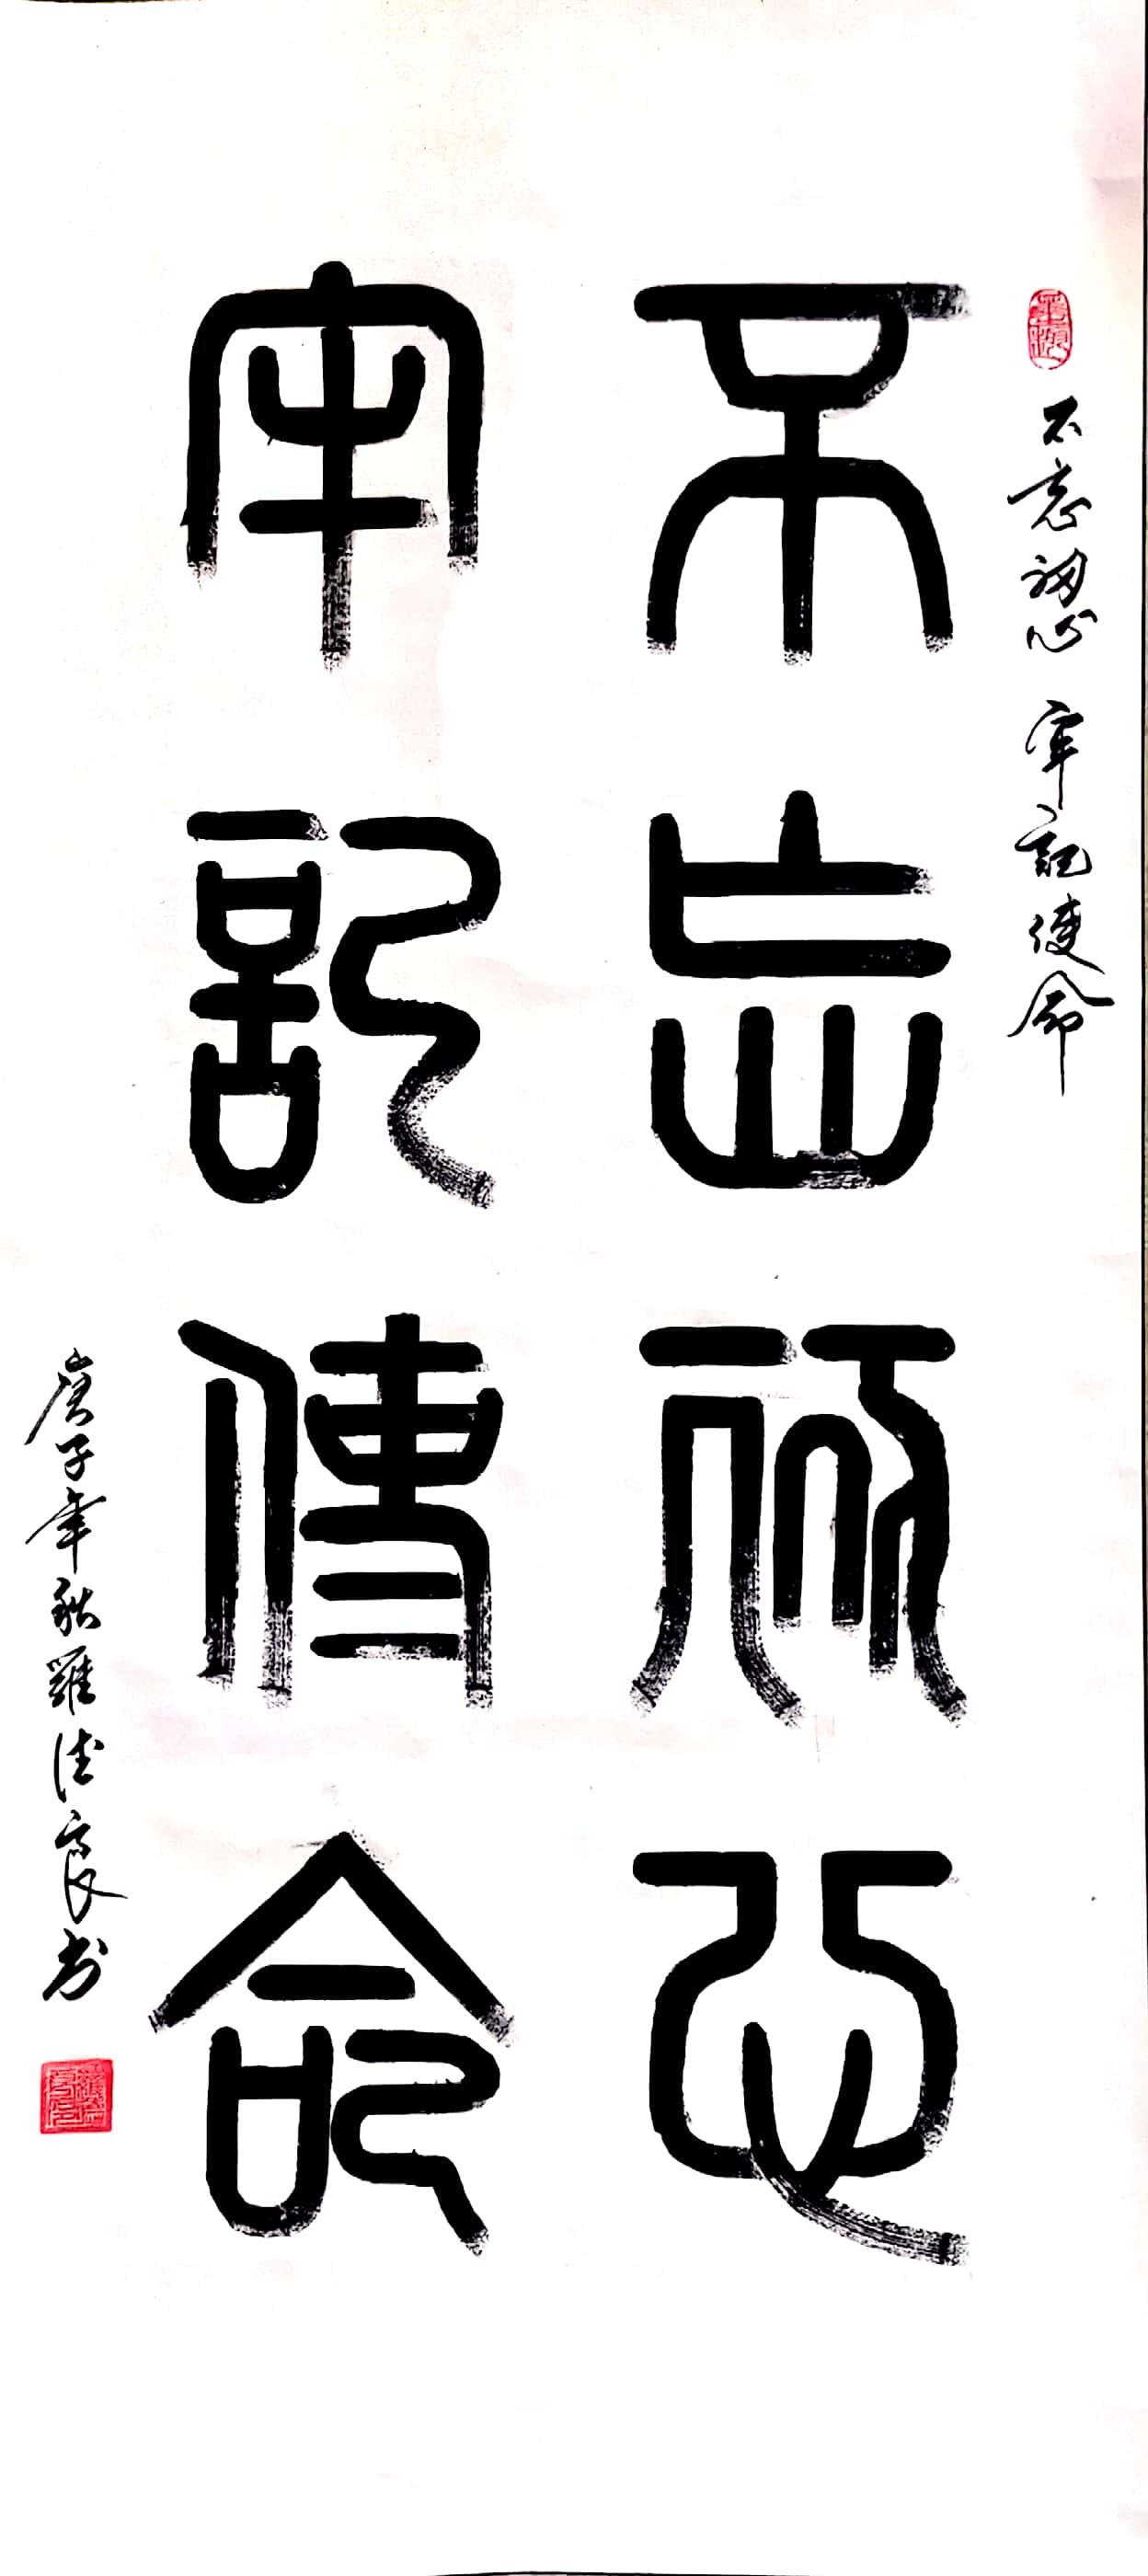 不忘初心 牢記使命
不忘初心
牢記使命
庚子年秋羅德良書